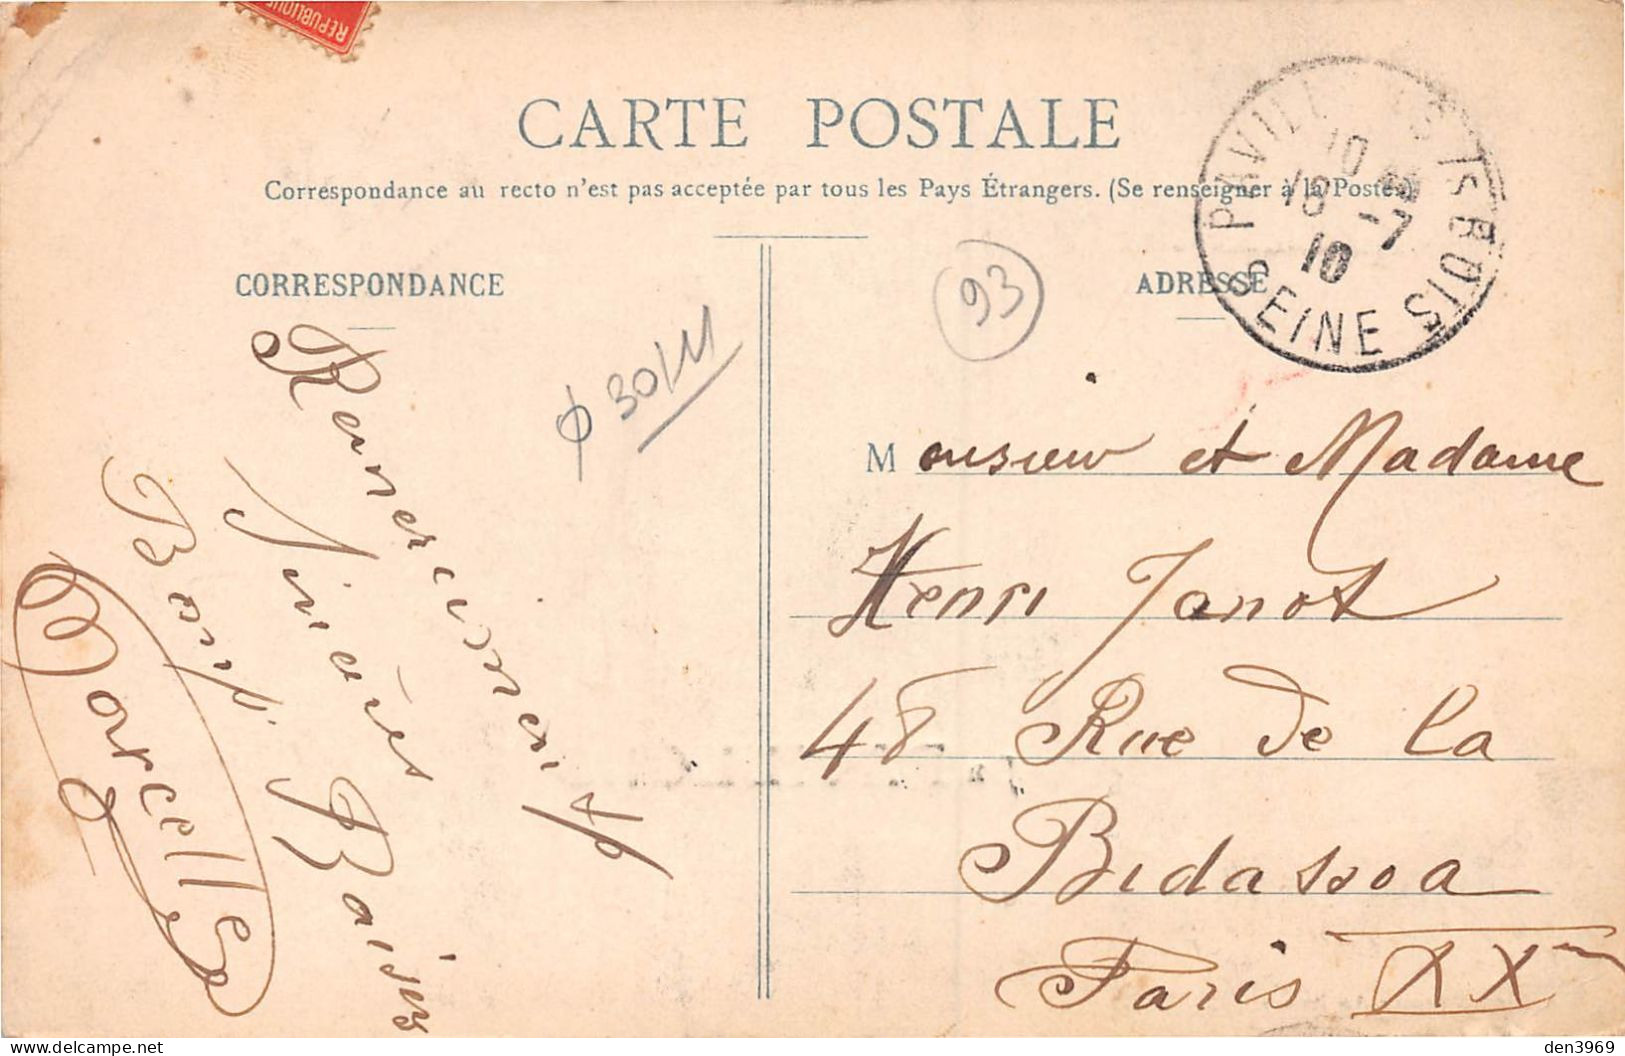 RÉPUBLIQUE
CARTE POSTALE
Correspondance au recto n'est pas acceptée par tous les Pays Étrangers. (Se renseigner à la Poste)
CORRESPONDANCE
ADRESSE
PAVILLONS S/S BOIS
10
16 -7
10
SEINE
93
ϕ 30/11
Remerciment
Sincères Baisers
Marcelle
Monsieur et Madame
Henri Janot
48 Rue de la
Bidassoa
Paris XX
delcampe.net
den3969